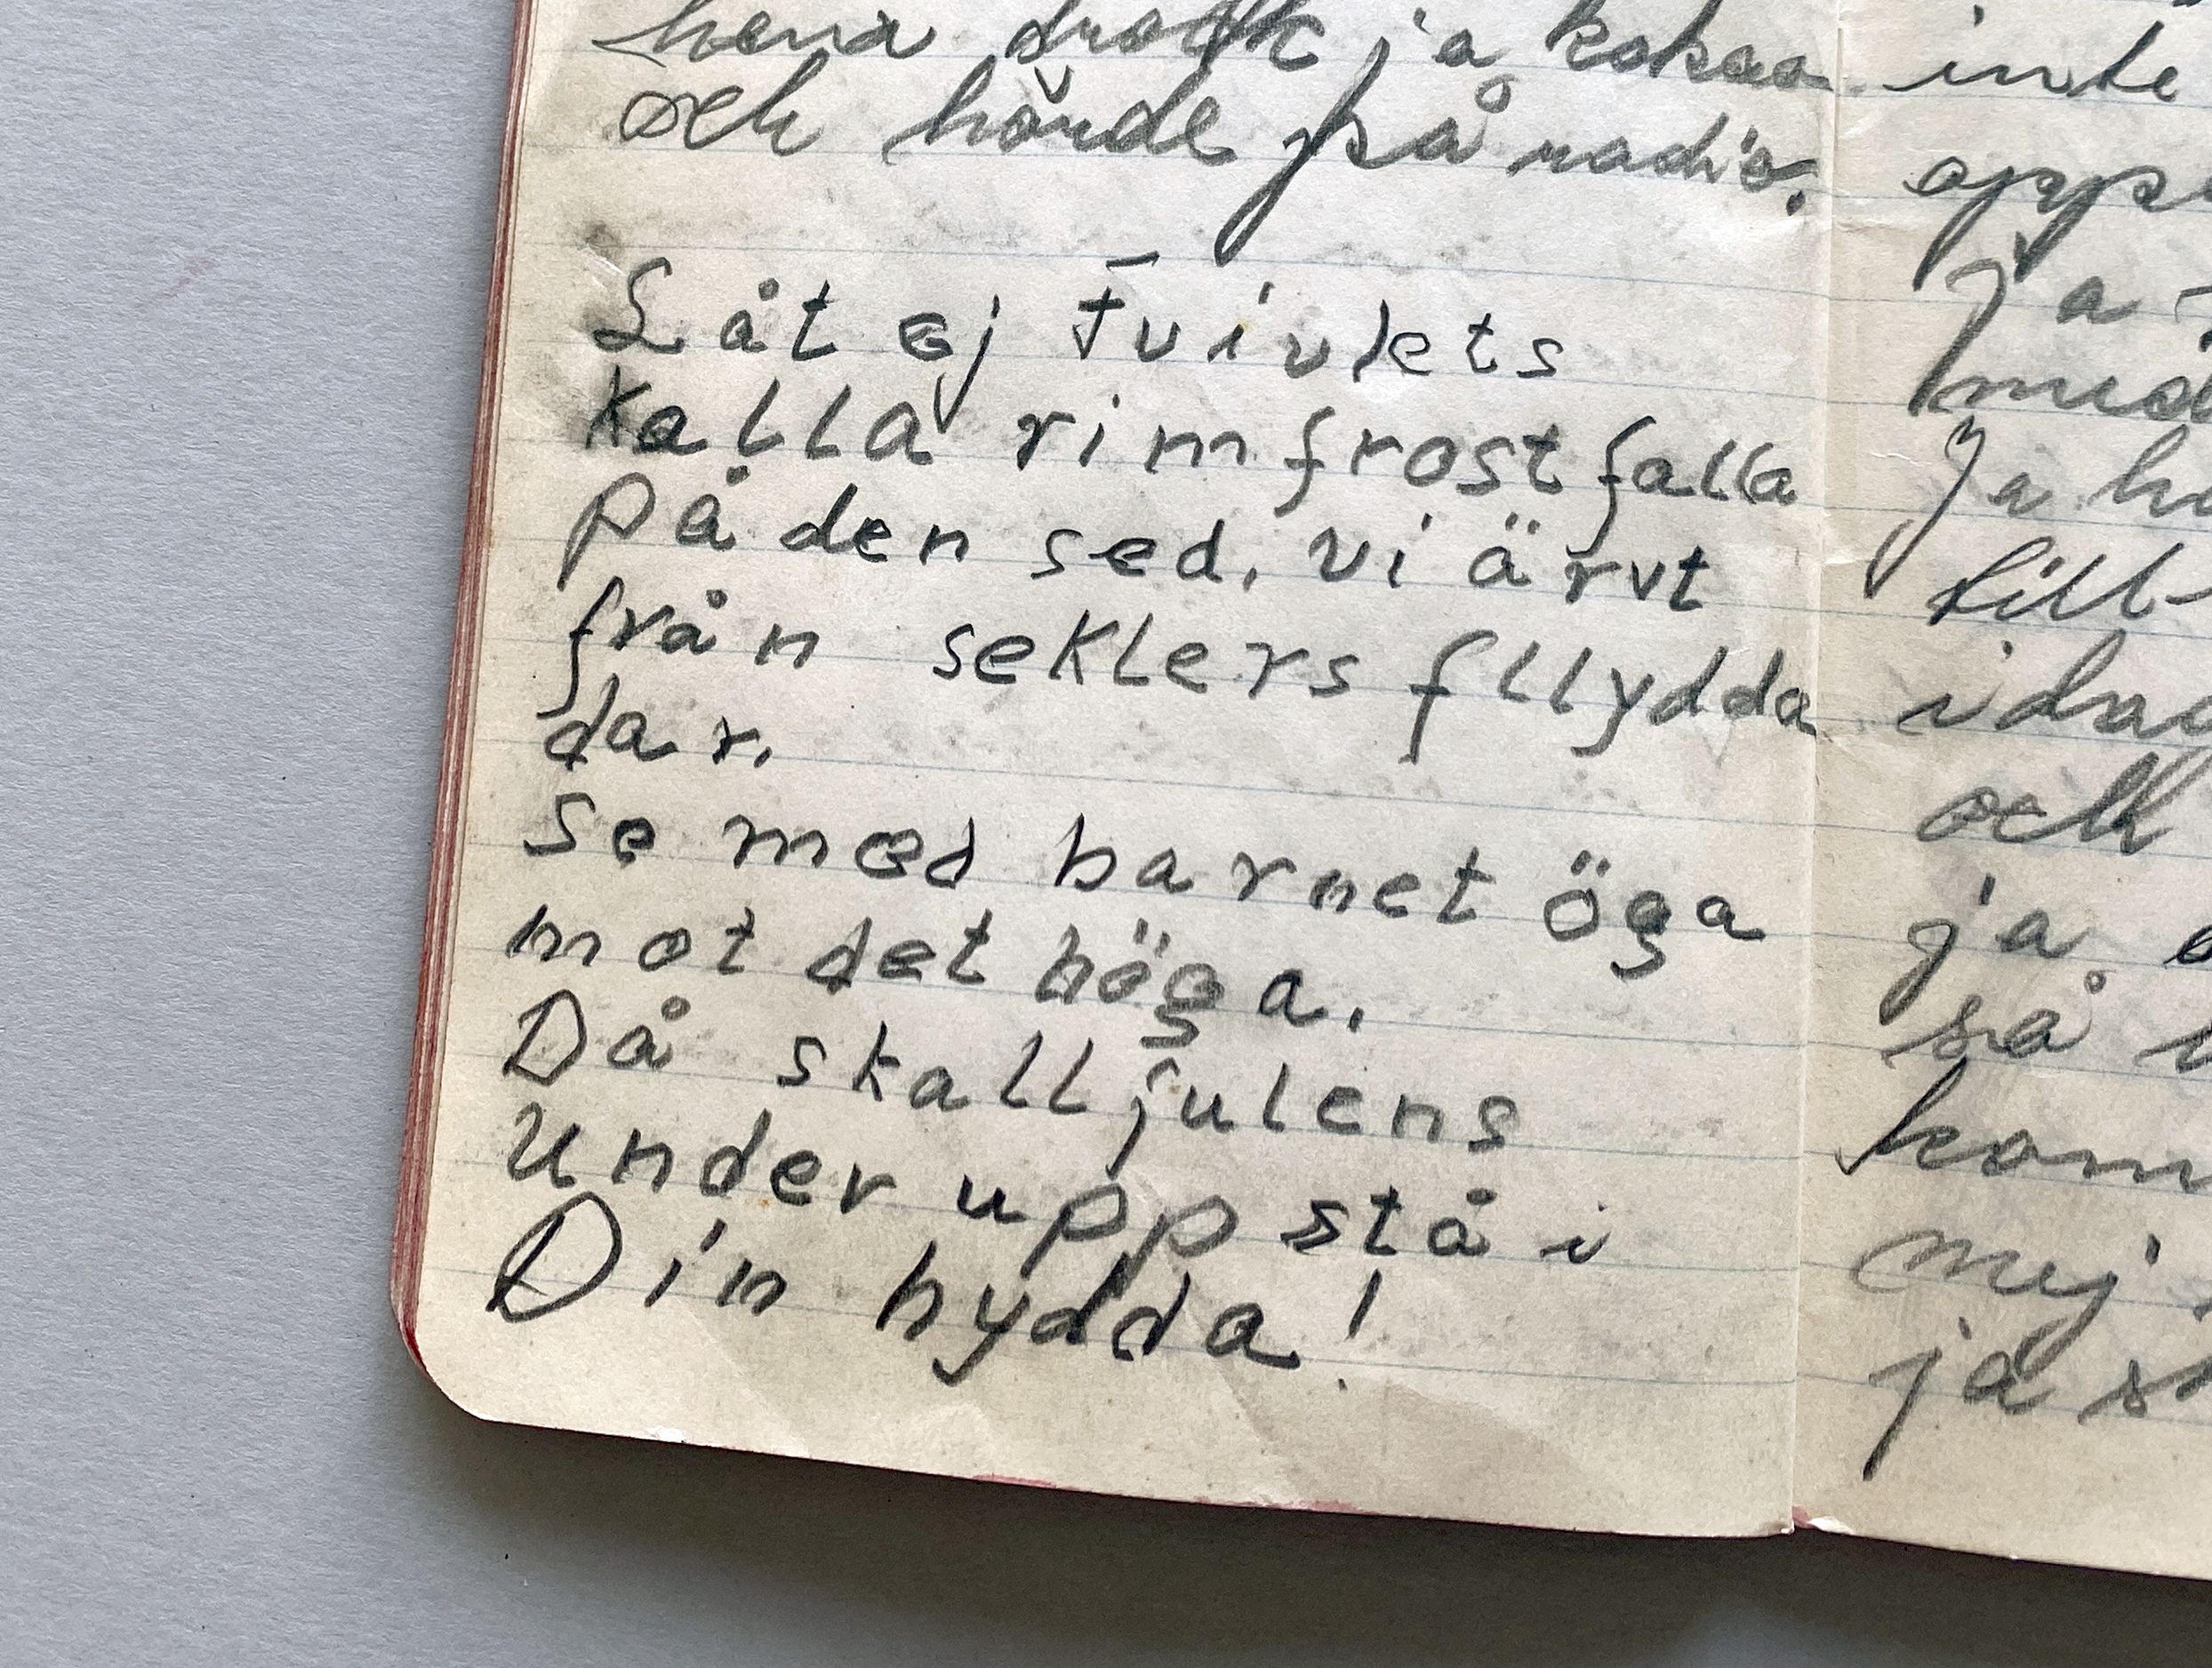 hena drack ja kakao
och hörde på radio.
Låt ej Tvivlets
kalla rimfrost falla
På den sed, vi ärvt
från seklers fllydda
dar.
Se med barnet öga
mot det höga.
Då skall julens
Under uppstå i
Din hydda!
inte
ja
Ja
till-
och
ja
så
mej
ja